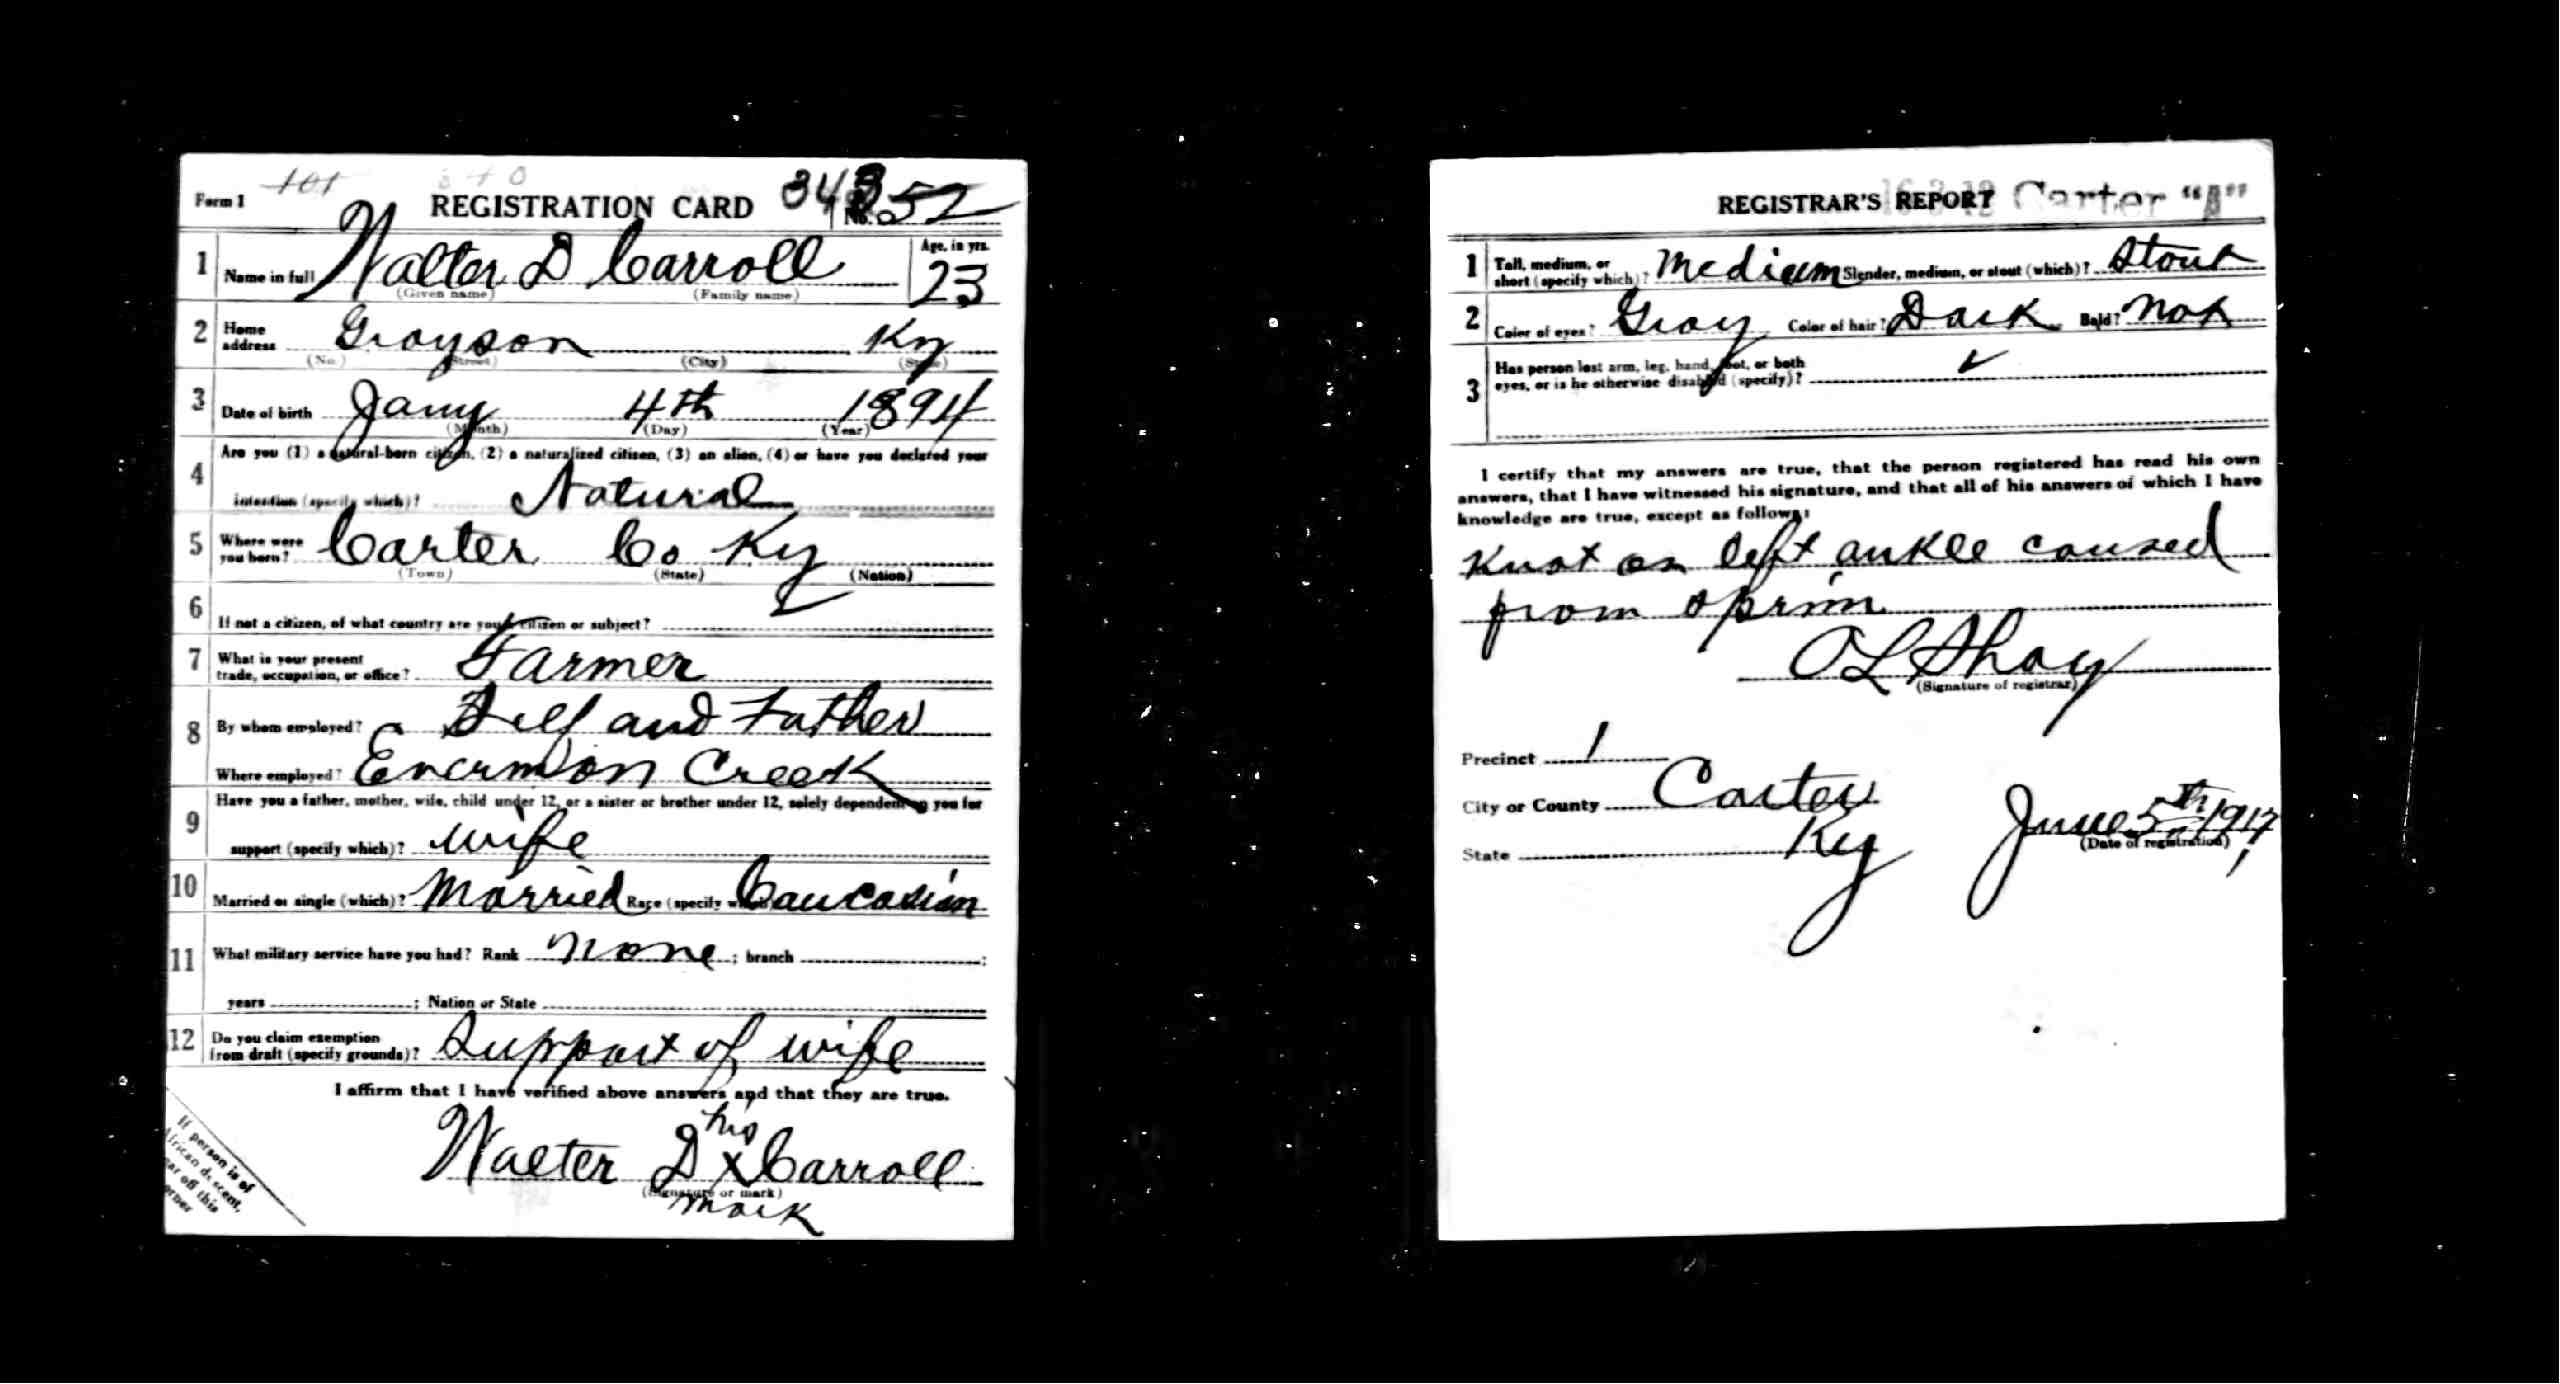 Form 1 101 370 REGISTRATION CARD 343 No. 52
1 Name in full Walter D Carroll Age, in yrs. 23
(Given name) (Family name)
2 Home address Grayson Ky
(No.) (Street) (City) (State)
3 Date of birth Jany 4th 1894
(Month) (Day) (Year)
4 Are you (1) a natural-born citizen, (2) a naturalized citizen, (3) an alien, (4) or have you declared your
intention (specify which)? Natural
5 Where were you born? Carter Co Ky
(Town) (State) (Nation)
6 If not a citizen, of what country are you a citizen or subject? ✓
7 What is your present trade, occupation, or office? Farmer
8 By whom employed? Self and Father
Where employed? Everman Creek
9 Have you a father, mother, wife, child under 12, or a sister or brother under 12, solely dependent on you for
support (specify which)? wife
10 Married or single (which)? Married Race (specify which)? Caucasian
11 What military service have you had? Rank none ; branch ;
years ; Nation or State
12 Do you claim exemption from draft (specify grounds)? Support of wife
I affirm that I have verified above answers and that they are true.
his
Walter D X Carroll
(Signature or mark)
mark
If person is of
African descent,
tear off this
corner
REGISTRAR'S REPORT 16-3-12 Carter "A"
1 Tall, medium, or short (specify which)? Medium Slender, medium, or stout (which)? Stout
2 Color of eyes? Gray Color of hair? Dark Bald? Not
3 Has person lost arm, leg, hand, foot, or both
eyes, or is he otherwise disabled (specify)? ✓
I certify that my answers are true, that the person registered has read his own
answers, that I have witnessed his signature, and that all of his answers of which I have
knowledge are true, except as follows:
Knot on left ankle caused
from sprin
O L Shay
(Signature of registrar)
Precinct 1
City or County Carter
State Ky June 5th 1917
(Date of registration)